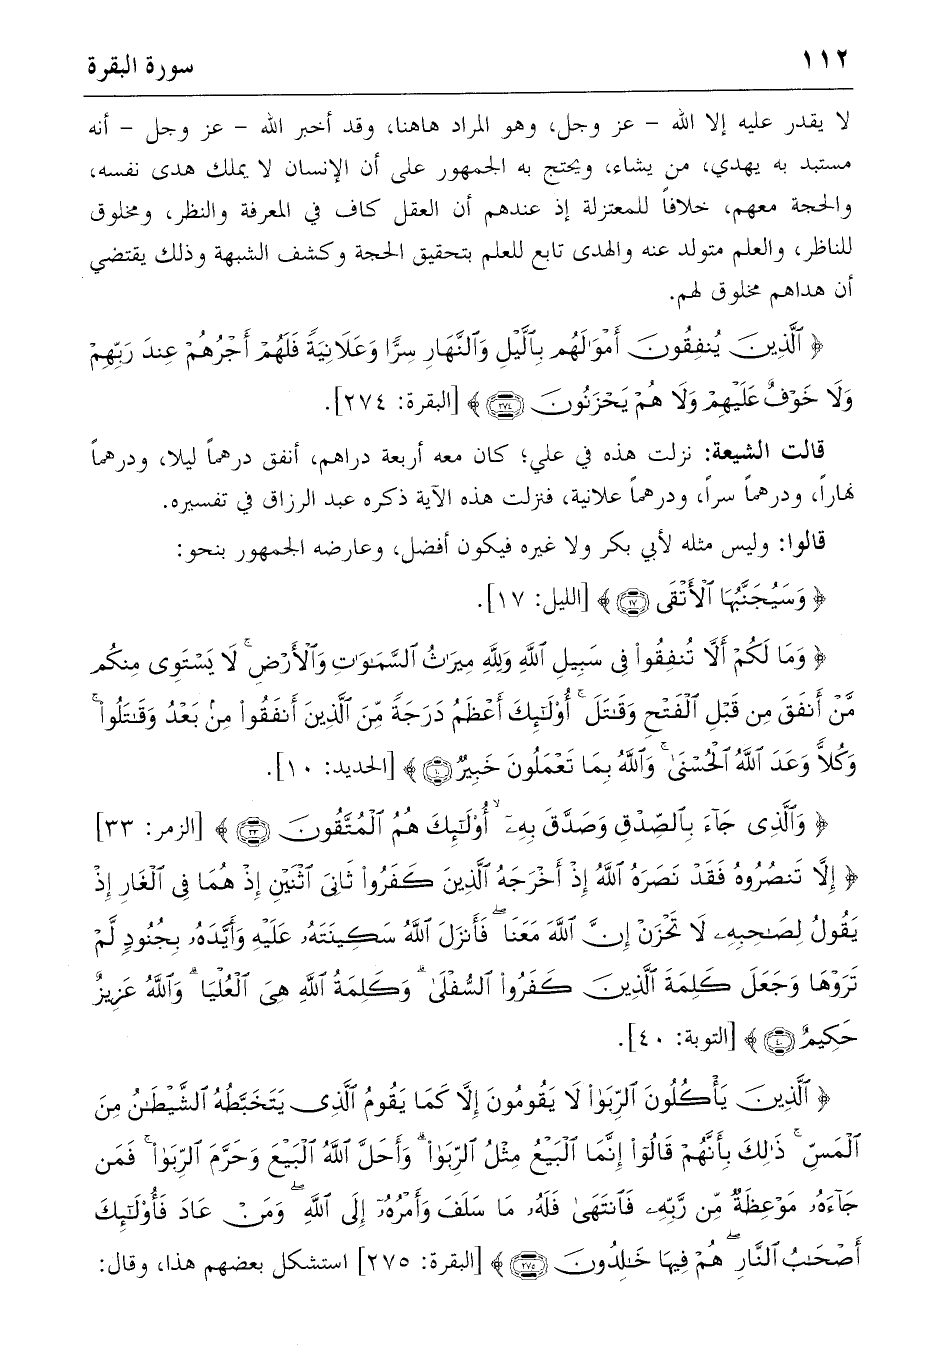 ١١٢
سورة البقرة
لا يقدر عليه إلا الله – عز وجل، وهو المراد هاهنا، وقد أخبر الله – عز وجل – أنه
مستبد به يهدي، من يشاء، ويحتج به الجمهور على أن الإنسان لا يملك هدى نفسه،
والحجة معهم، خلافاً للمعتزلة إذ عندهم أن العقل كاف في المعرفة والنظر، ومخلوق
للناظر، والعلم متولد عنه والهدى تابع للعلم بتحقيق الحجة وكشف الشبهة وذلك يقتضي
أن هداهم مخلوق لهم.
﴿ ٱلَّذِينَ يُنفِقُونَ أَمْوَٰلَهُم بِٱلَّيْلِ وَٱلنَّهَارِ سِرًّا وَعَلَانِيَةً فَلَهُمْ أَجْرُهُمْ عِندَ رَبِّهِمْ
وَلَا خَوْفٌ عَلَيْهِمْ وَلَا هُمْ يَحْزَنُونَ ۝٢٧٤ ﴾ [البقرة: ٢٧٤].
قالت الشيعة: نزلت هذه في علي؛ كان معه أربعة دراهم، أنفق درهماً ليلا، ودرهماً
نهاراً، ودرهماً سراً، ودرهماً علانية، فنزلت هذه الآية ذكره عبد الرزاق في تفسيره.
قالوا: وليس مثله لأبي بكر ولا غيره فيكون أفضل، وعارضه الجمهور بنحو:
﴿ وَسَيُجَنَّبُهَا ٱلْأَتْقَى ۝١٧ ﴾ [الليل: ١٧].
﴿ وَمَا لَكُمْ أَلَّا تُنفِقُوا۟ فِى سَبِيلِ ٱللَّهِ وَلِلَّهِ مِيرَٰثُ ٱلسَّمَٰوَٰتِ وَٱلْأَرْضِ ۚ لَا يَسْتَوِى مِنكُم
مَّنْ أَنفَقَ مِن قَبْلِ ٱلْفَتْحِ وَقَٰتَلَ ۚ أُو۟لَٰٓئِكَ أَعْظَمُ دَرَجَةً مِّنَ ٱلَّذِينَ أَنفَقُوا۟ مِنۢ بَعْدُ وَقَٰتَلُوا۟ ۚ
وَكُلًّا وَعَدَ ٱللَّهُ ٱلْحُسْنَىٰ ۚ وَٱللَّهُ بِمَا تَعْمَلُونَ خَبِيرٌ ۝١٠ ﴾ [الحديد: ١٠].
﴿ وَٱلَّذِى جَآءَ بِٱلصِّدْقِ وَصَدَّقَ بِهِۦٓ ۙ أُو۟لَٰٓئِكَ هُمُ ٱلْمُتَّقُونَ ۝٣٣ ﴾ [الزمر: ٣٣]
﴿ إِلَّا تَنصُرُوهُ فَقَدْ نَصَرَهُ ٱللَّهُ إِذْ أَخْرَجَهُ ٱلَّذِينَ كَفَرُوا۟ ثَانِىَ ٱثْنَيْنِ إِذْ هُمَا فِى ٱلْغَارِ إِذْ
يَقُولُ لِصَٰحِبِهِۦ لَا تَحْزَنْ إِنَّ ٱللَّهَ مَعَنَا ۖ فَأَنزَلَ ٱللَّهُ سَكِينَتَهُۥ عَلَيْهِ وَأَيَّدَهُۥ بِجُنُودٍ لَّمْ
تَرَوْهَا وَجَعَلَ كَلِمَةَ ٱلَّذِينَ كَفَرُوا۟ ٱلسُّفْلَىٰ ۗ وَكَلِمَةُ ٱللَّهِ هِىَ ٱلْعُلْيَا ۗ وَٱللَّهُ عَزِيزٌ
حَكِيمٌ ۝٤٠ ﴾ [التوبة: ٤٠].
﴿ ٱلَّذِينَ يَأْكُلُونَ ٱلرِّبَوٰا۟ لَا يَقُومُونَ إِلَّا كَمَا يَقُومُ ٱلَّذِى يَتَخَبَّطُهُ ٱلشَّيْطَٰنُ مِنَ
ٱلْمَسِّ ۚ ذَٰلِكَ بِأَنَّهُمْ قَالُوٓا۟ إِنَّمَا ٱلْبَيْعُ مِثْلُ ٱلرِّبَوٰا۟ ۗ وَأَحَلَّ ٱللَّهُ ٱلْبَيْعَ وَحَرَّمَ ٱلرِّبَوٰا۟ ۚ فَمَن
جَآءَهُۥ مَوْعِظَةٌ مِّن رَّبِّهِۦ فَٱنتَهَىٰ فَلَهُۥ مَا سَلَفَ وَأَمْرُهُۥٓ إِلَى ٱللَّهِ ۖ وَمَنْ عَادَ فَأُو۟لَٰٓئِكَ
أَصْحَٰبُ ٱلنَّارِ ۖ هُمْ فِيهَا خَٰلِدُونَ ۝٢٧٥ ﴾ [البقرة: ٢٧٥] استشكل بعضهم هذا، وقال: